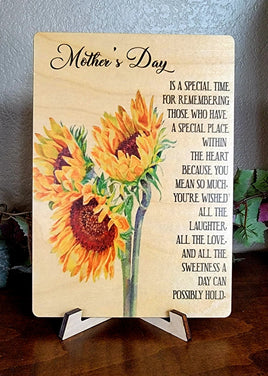 Mother's Day
IS A SPECIAL TIME
FOR REMEMBERING
THOSE WHO HAVE
A SPECIAL PLACE
WITHIN
THE HEART
BECAUSE YOU
MEAN SO MUCH-
YOU'RE WISHED
ALL THE
LAUGHTER,
ALL THE LOVE,
AND ALL THE
SWEETNESS A
DAY CAN
POSSIBLY HOLD.